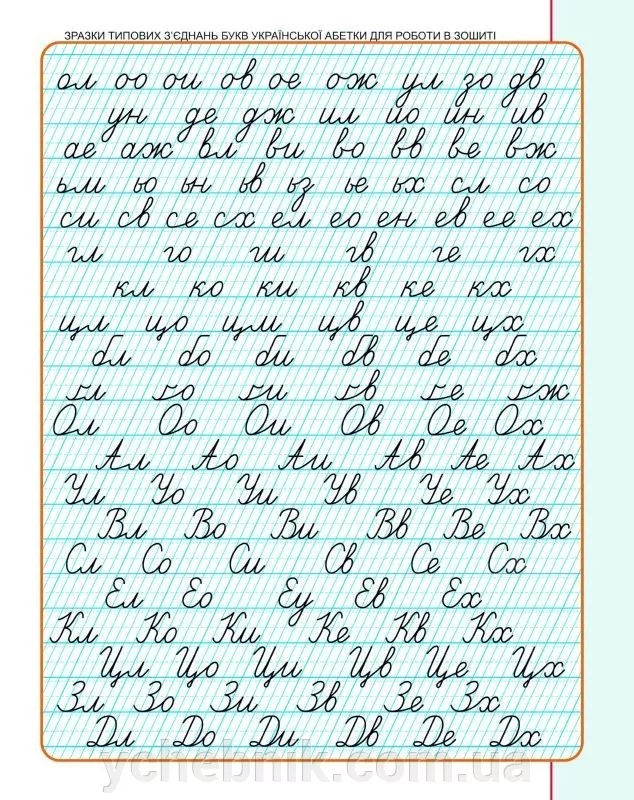 ЗРАЗКИ ТИПОВИХ З'ЄДНАНЬ БУКВ УКРАЇНСЬКОЇ АБЕТКИ ДЛЯ РОБОТИ В ЗОШИТІ
ол оо ои ов ое ож ул зо дв
ун де дж ил ио ин ив
ае аж вл ви во вв ве вж
ьм ьо ьн ьв ьз ье ьх сл со
си св се сх ел ео ен ев ее ех
гл го ги гв ге гх
кл ко ки кв ке кх
цл цо ци цв це цх
бл бо би бв бе бх
ґл ґо ґи ґв ґе ґж
Ол Оо Ои Ов Ое Ох
Ал Ао Аи Ав Ае Ах
Ул Уо Уи Ув Уе Ух
Вл Во Ви Вв Ве Вх
Сл Со Си Св Се Сх
Ел Ео Еу Ев Ех
Кл Ко Ки Ке Кв Кх
Цл Цо Ци Цв Це Цх
Зл Зо Зи Зв Зе Зх
Дл До Ди Дв Де Дх
ychebnik.com.ua